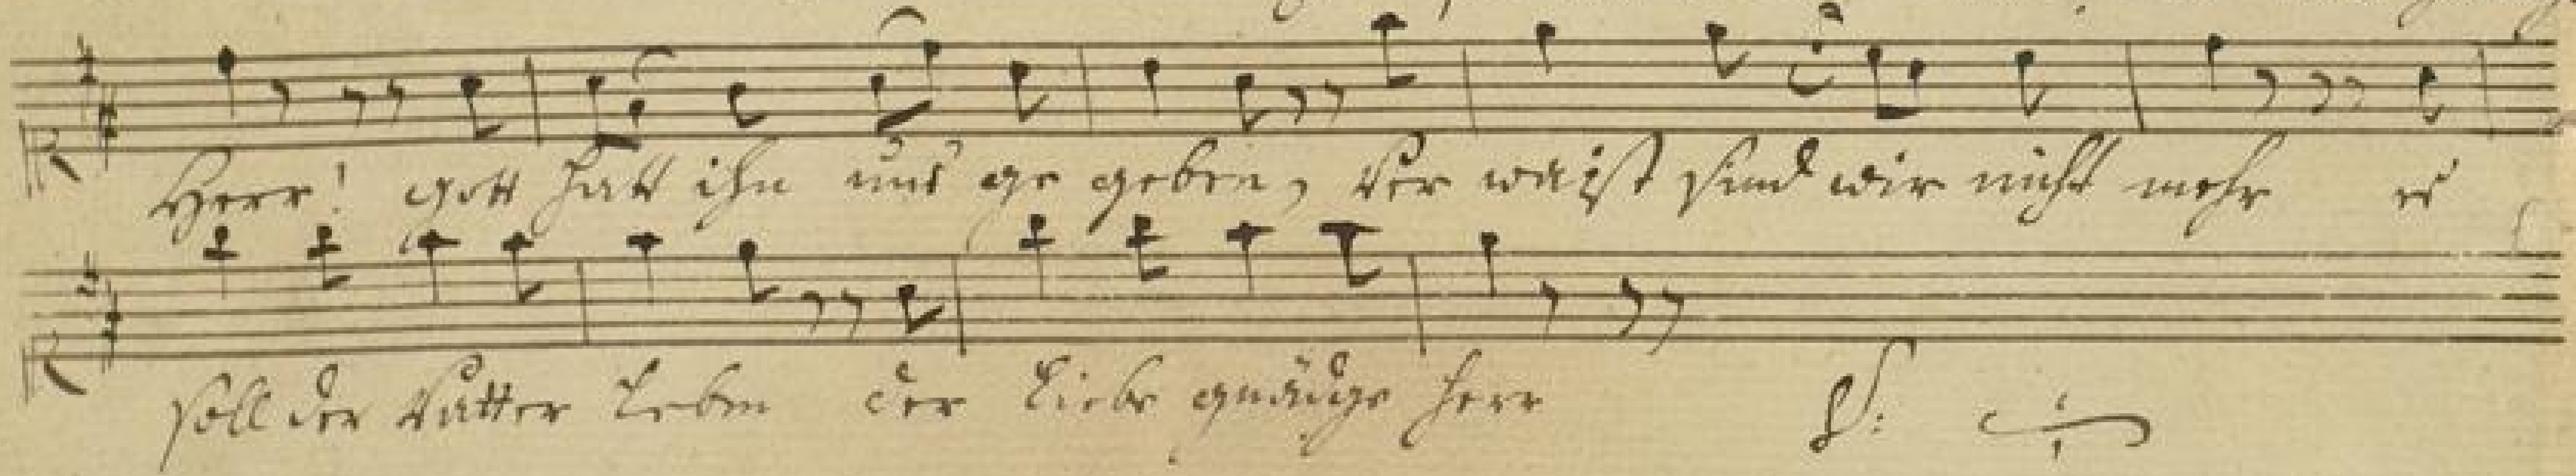 Herr! gott hatt ihn uns ge geben, Ver waist sind wir nicht mehr es
soll der Vatter leben der liebe gnädige herr